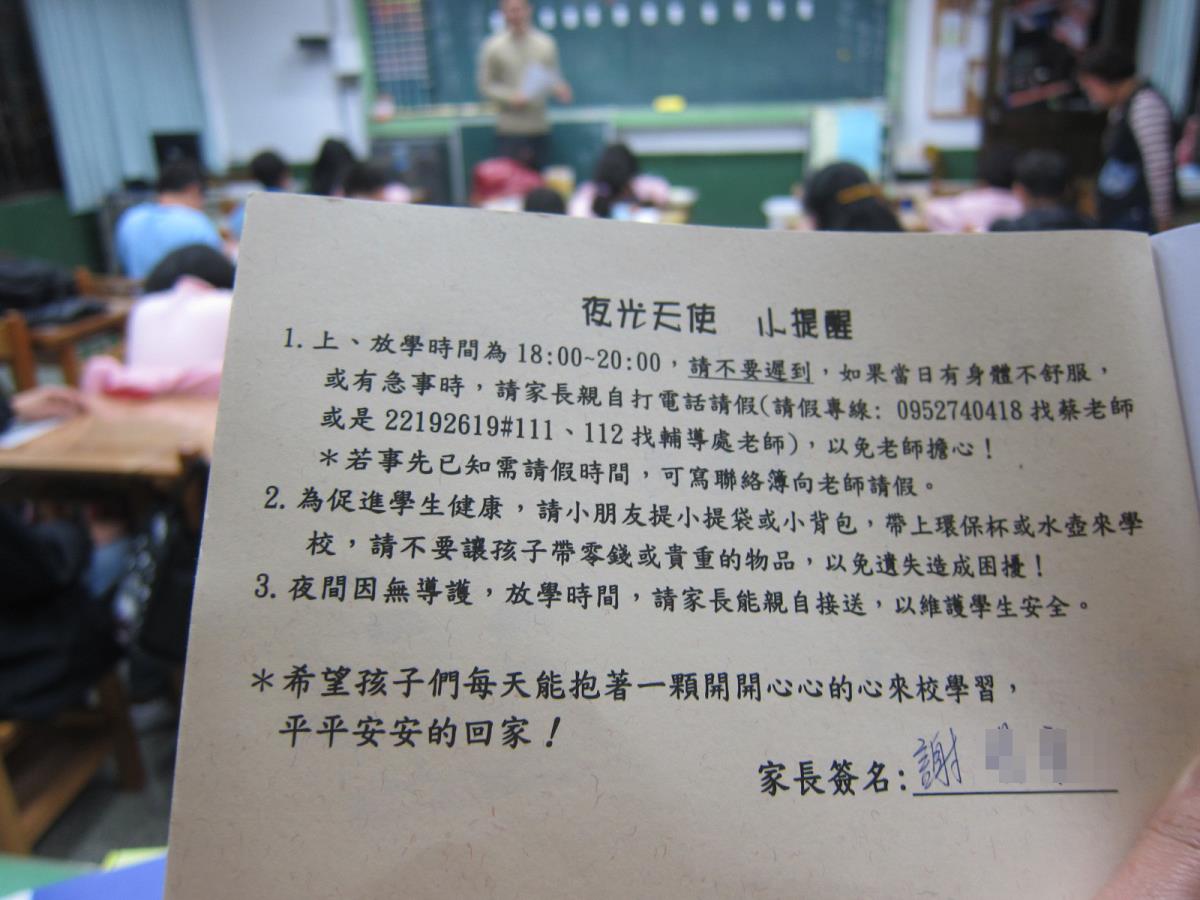 夜光天使 小提醒
1. 上、放學時間為 18:00~20:00,請不要遲到,如果當日有身體不舒服,
或有急事時,請家長親自打電話請假(請假專線: 0952740418 找蔡老師
或是 22192619#111、112 找輔導處老師),以免老師擔心!
＊若事先已知需請假時間,可寫聯絡簿向老師請假。
2. 為促進學生健康,請小朋友提小提袋或小背包,帶上環保杯或水壺來學
校,請不要讓孩子帶零錢或貴重的物品,以免遺失造成困擾!
3. 夜間因無導護,放學時間,請家長能親自接送,以維護學生安全。
＊希望孩子們每天能抱著一顆開開心心的心來校學習,
平平安安的回家!
家長簽名:謝